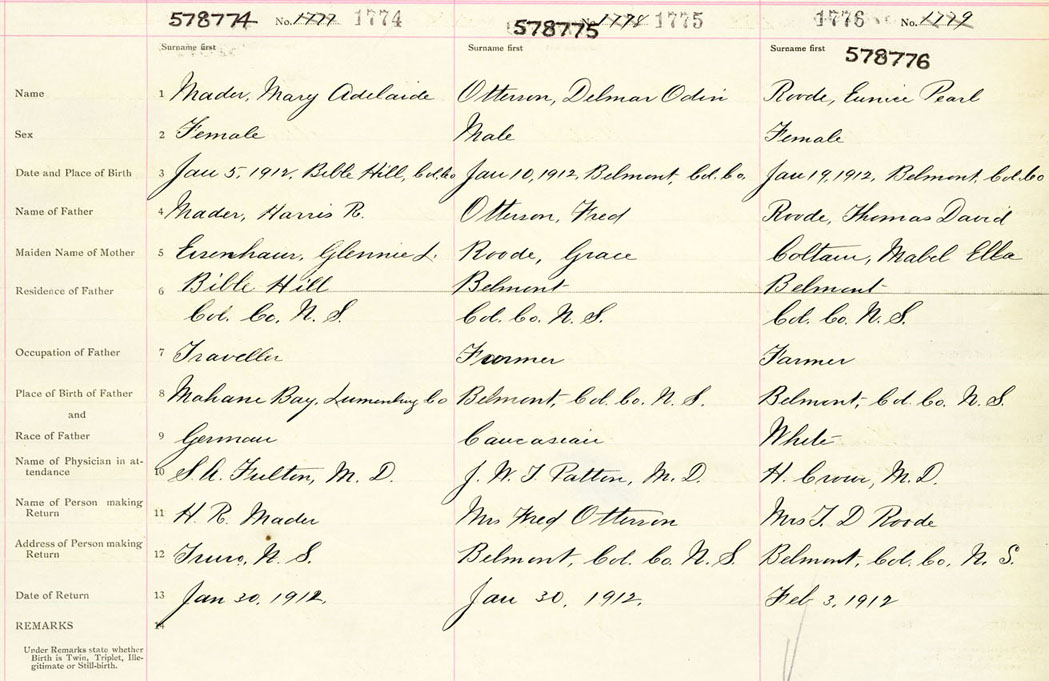 578774 No. 1777 1774 578775 No. 1778 1775 1776 No. 1779
Surname first Surname first Surname first 578776
Name 1 Mader, Mary Adelaide Otterson, Delmar Odin Roode, Eunice Pearl
Sex 2 Female Male Female
Date and Place of Birth 3 Jan 5, 1912, Bible Hill, Col. Co Jan 10, 1912, Belmont, Col. Co. Jan 19, 1912, Belmont, Col. Co
Name of Father 4 Mader, Harris R. Otterson, Fred Roode, Thomas David
Maiden Name of Mother 5 Eisenhaur, Glennie L. Roode, Grace Coltam, Mabel Ella
Residence of Father 6 Bible Hill Belmont Belmont
Col. Co. N. S. Col. Co. N. S. Col. Co. N. S.
Occupation of Father 7 Traveller Farmer Farmer
Place of Birth of Father 8 Mahane Bay, Lunenburg Co Belmont, Col. Co. N. S. Belmont, Col. Co. N. S.
and
Race of Father 9 German Caucasian White
Name of Physician in at-
tendance 10 S. A. Fulton, M. D. J. W. T. Patton, M. D. H. Crowe, M. D.
Name of Person making
Return 11 H. R. Mader Mrs Fred Otterson Mrs T. D Roode
Address of Person making
Return 12 Truro, N. S. Belmont, Col. Co. N. S. Belmont, Col. Co. N. S.
Date of Return 13 Jan 30, 1912. Jan 30, 1912. Feb 3, 1912
REMARKS 14
Under Remarks state whether
Birth is Twin, Triplet, Ille-
gitimate or Still-birth.